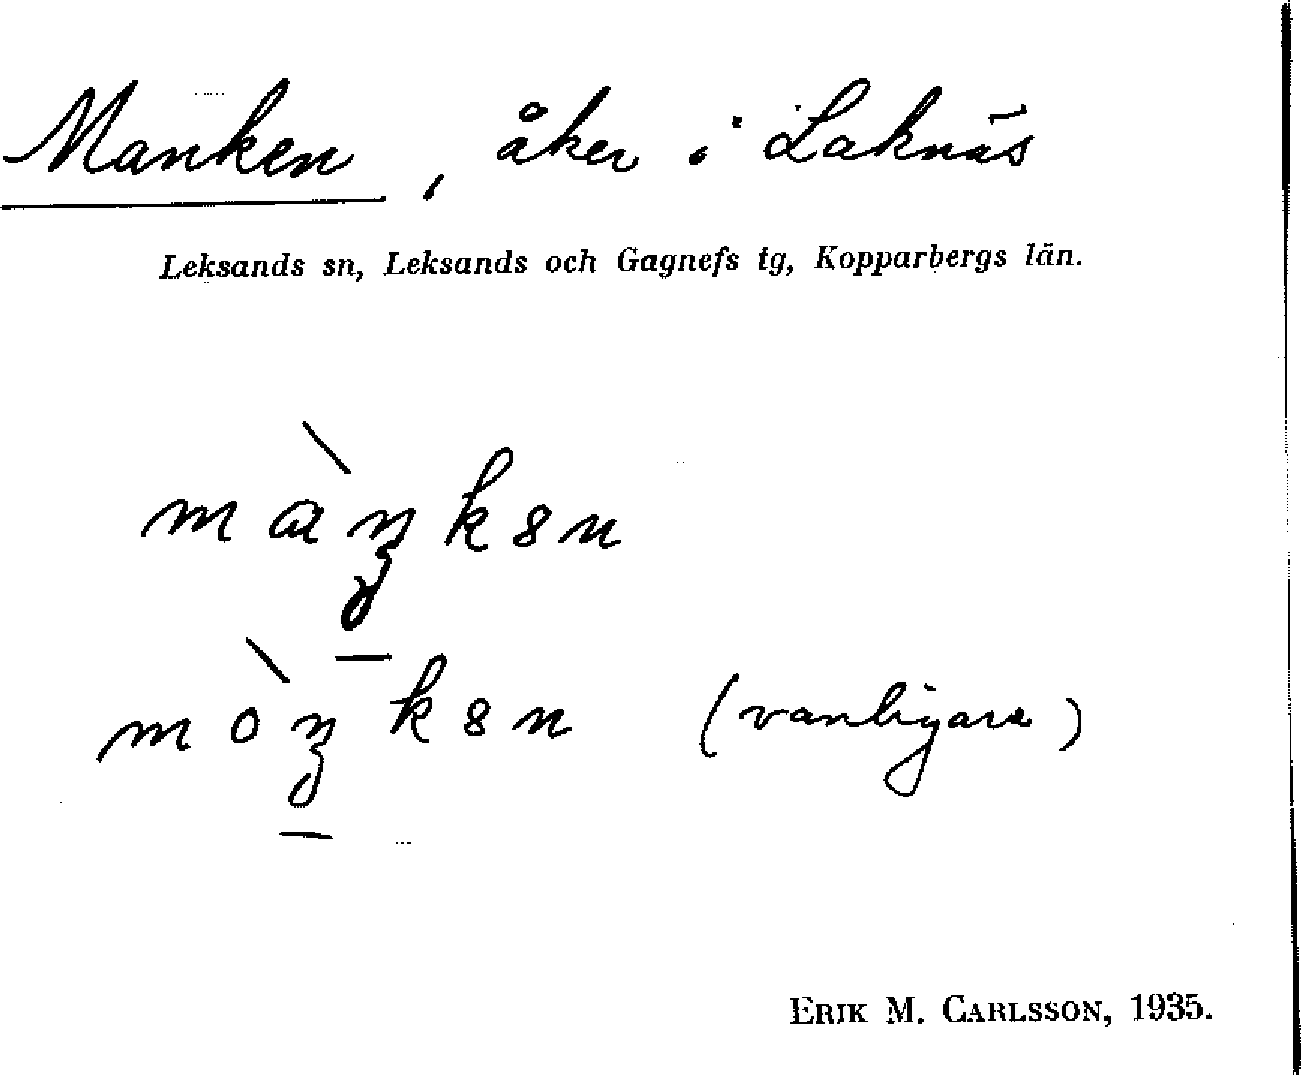 Manken, åker i Laknäs
Leksands sn, Leksands och Gagnefs tg, Kopparbergs län.
màŋkən
mòŋkən (vanligare)
ERIK M. CARLSSON, 1935.